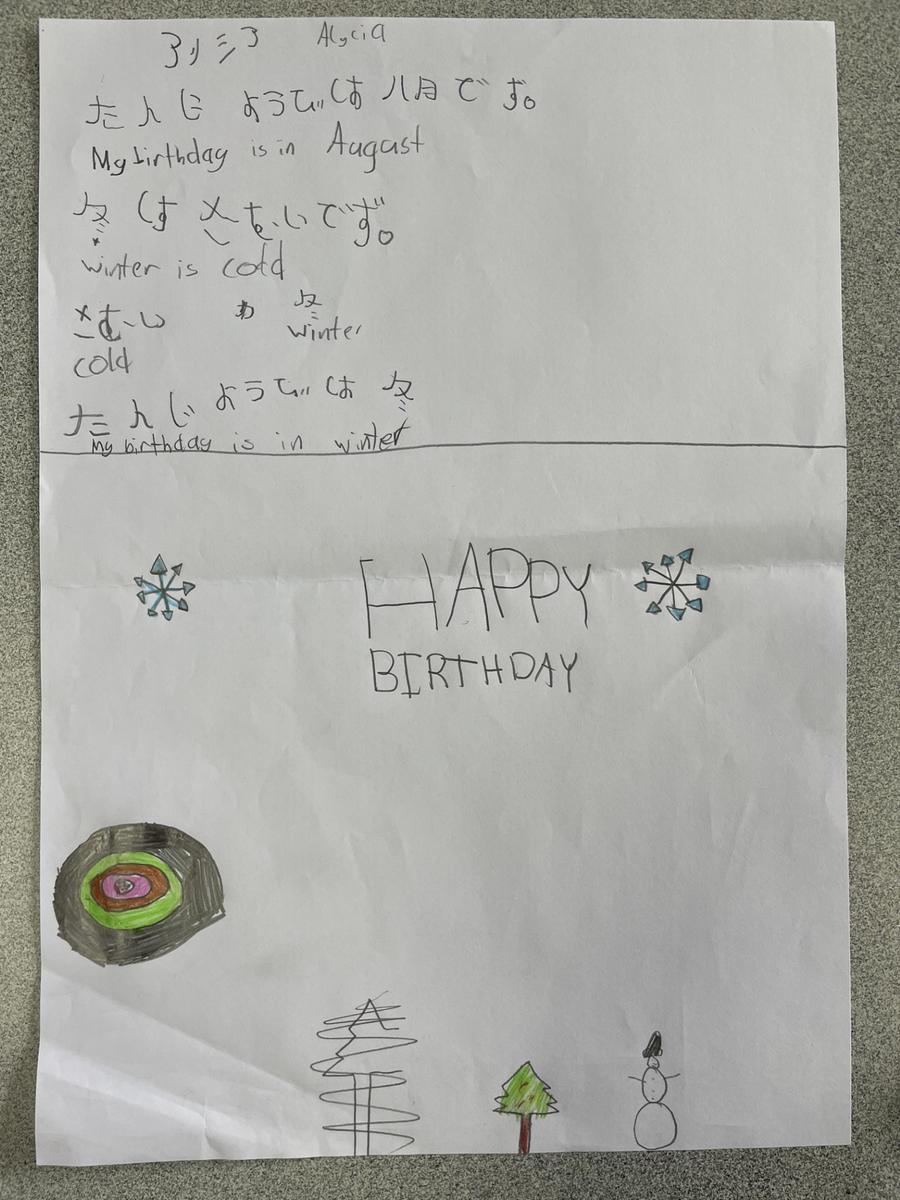 アリシア Alycia
たんじ ようびは 八月です。
My birthday is in August
冬はさむいです。
winter is cold
さむい 冬
cold winter
たんじ ようびは 冬
My birthday is in winter
HAPPY
BIRTHDAY